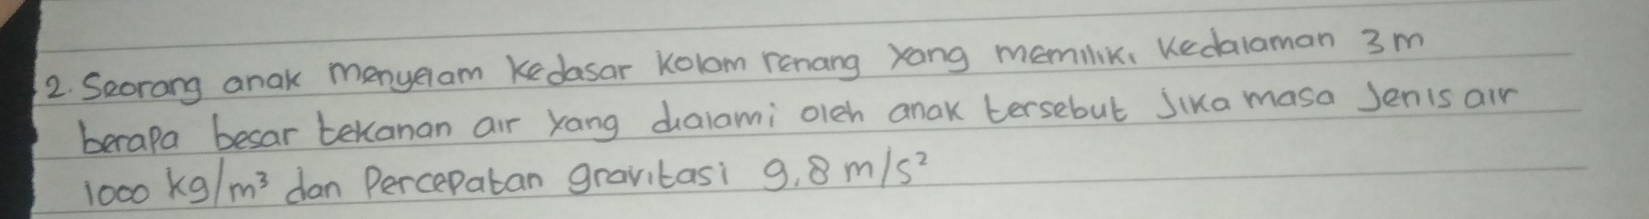 2. Seorang anak menyelam kedasar kolam renang yang memiliki kedalaman 3 m
berapa besar tekanan air yang dialami oleh anak tersebut jika masa jenis air
1000 kg/m³ dan Percepatan gravitasi 9,8 m/s²